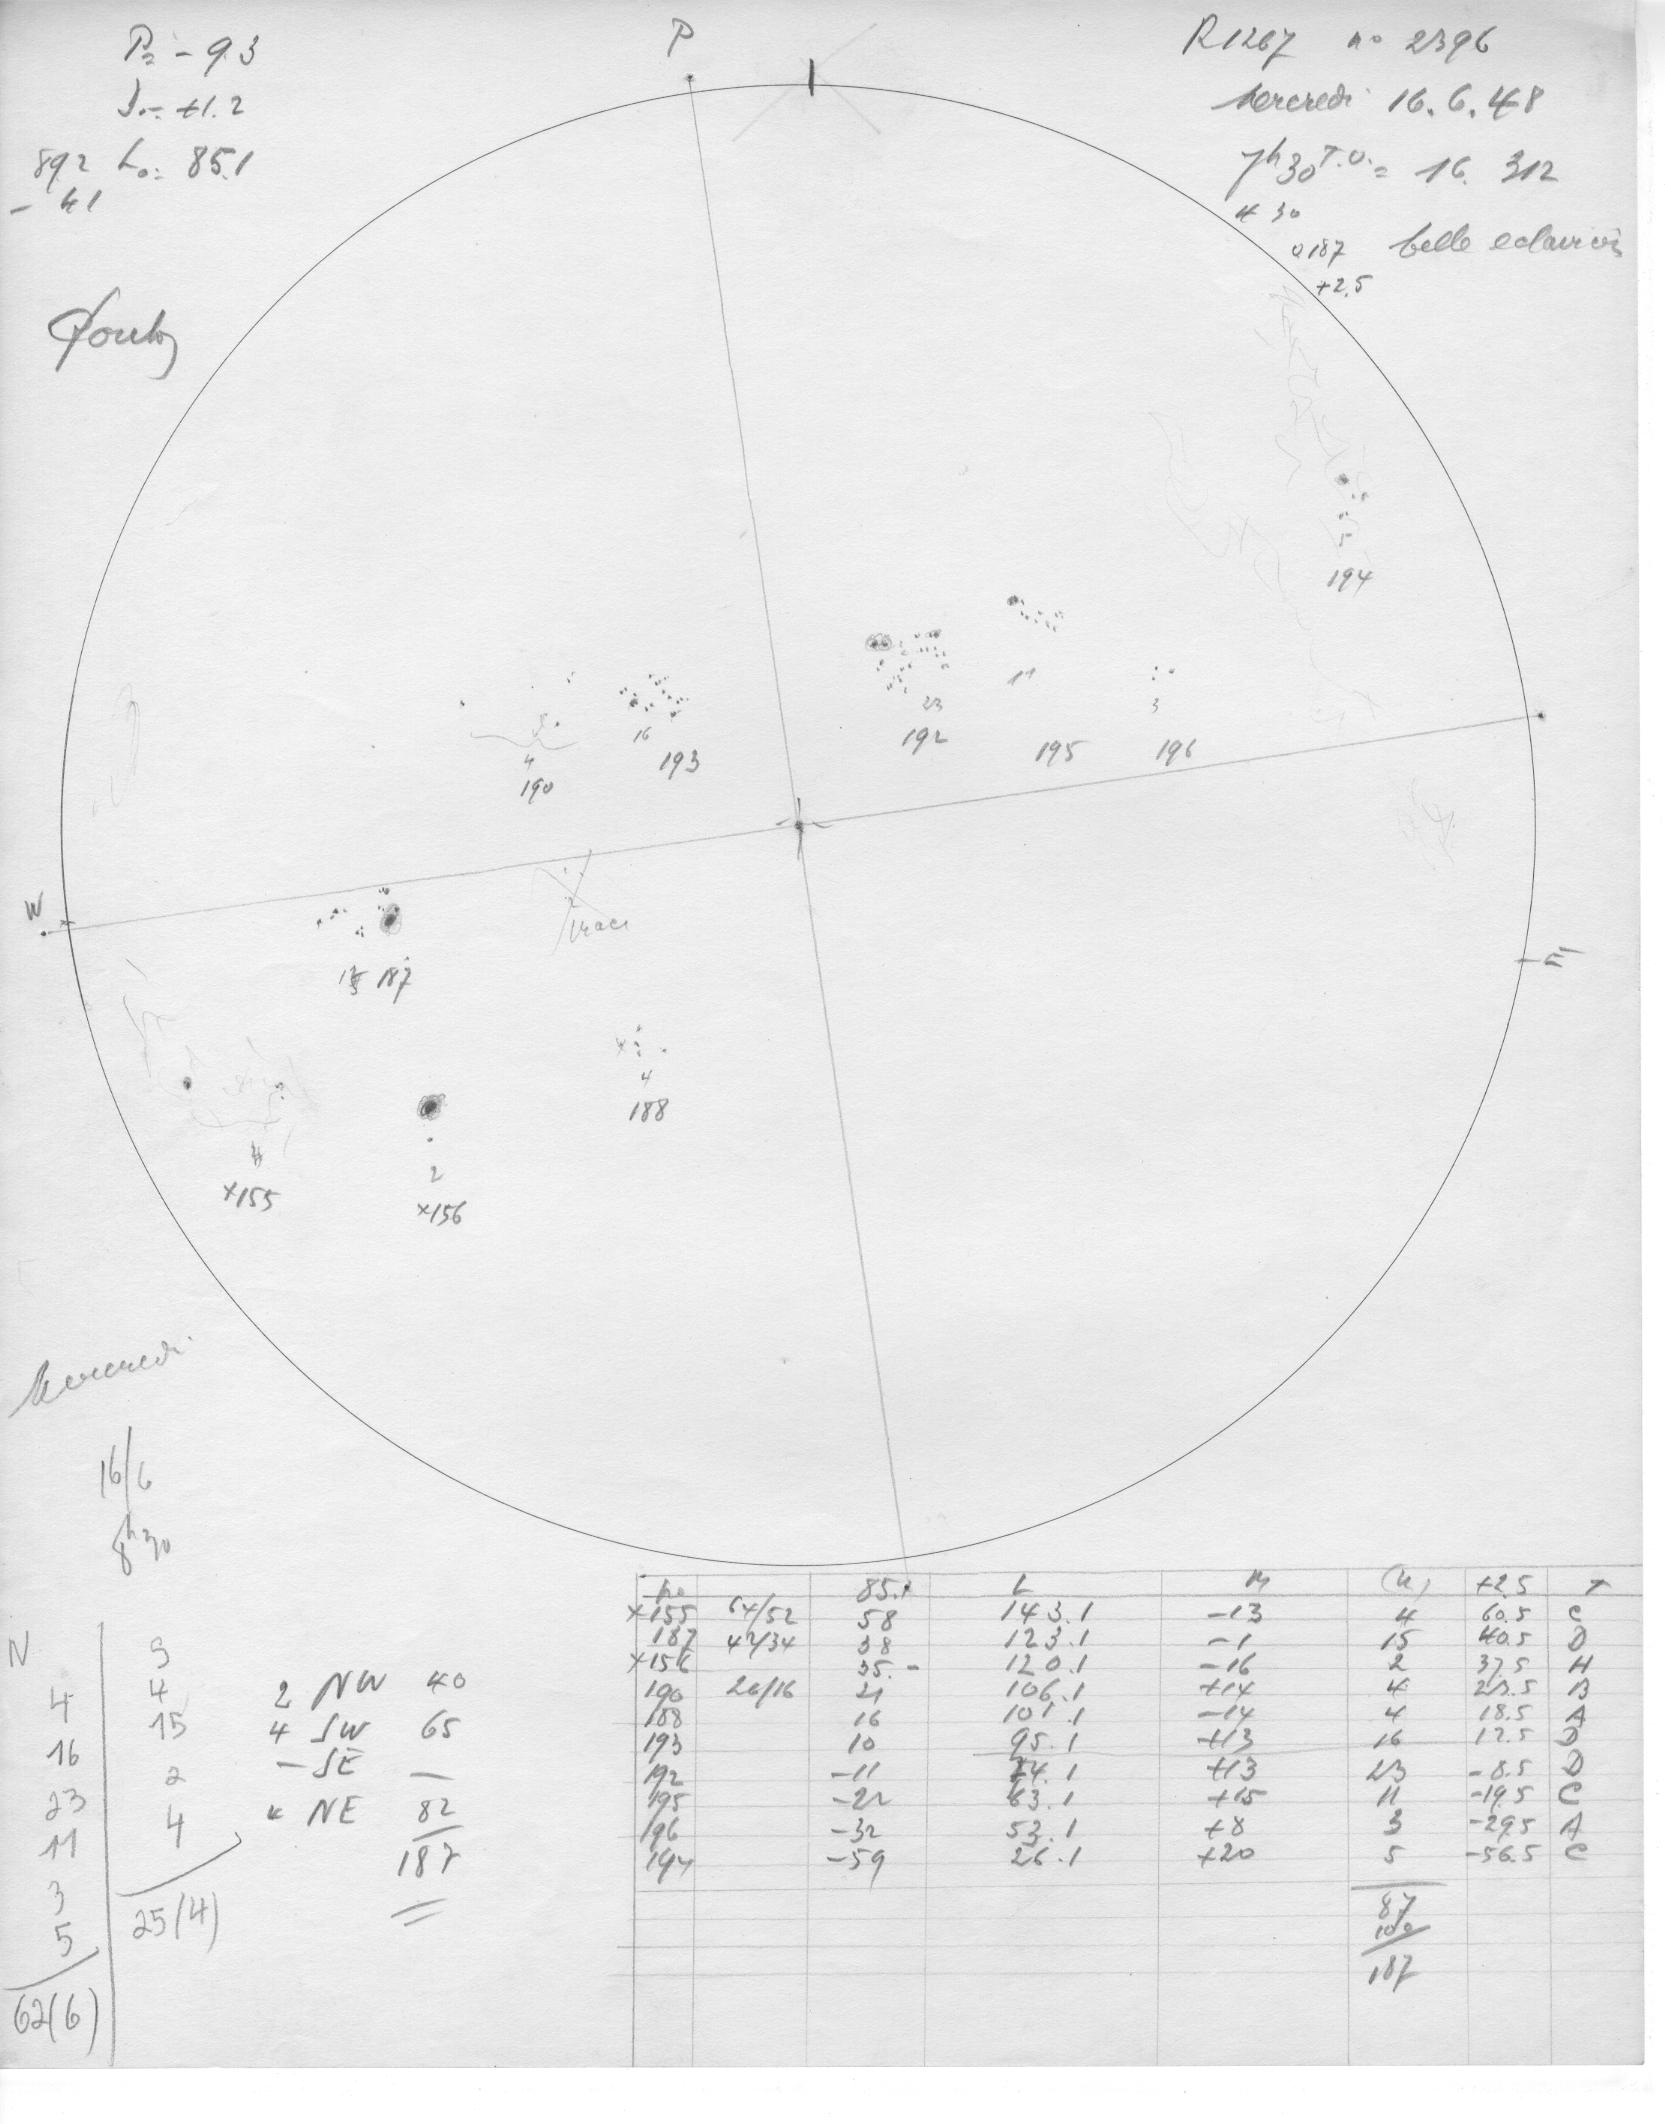 P= -9.3
P
R1267 no 2396
= +1.2
Mercredi 16.6.48
89.2 Lo= 85.1
- 4.1
7h30 T.U. = 16. 312
+ 30
0187 belle eclaircie
+2.5
5
194
11
23
3
16
192 195 196
193
4
190
W
E
187
4
188
4
×155
2
×156
Mercredi
16/6
8h30
N S
4 4
16 15
23 2
11 4
3 25(4)
5
62(6)
2 NW 40
4 SW 65
- SE —
4 NE 82
187
No 85.1 L (n) +2.5 T
×155 64/52 58 143.1 -13 4 60.5 C
187 42/34 38 123.1 -1 15 40.5 D
×156 35.- 120.1 -16 2 37.5 H
190 26/16 21 106.1 +14 4 23.5 B
188 16 101.1 -14 4 18.5 A
193 10 95.1 +13 16 12.5 D
192 -11 74.1 +13 23 -8.5 D
195 -22 63.1 +15 11 -19.5 C
196 -32 53.1 +8 3 -29.5 A
194 -59 26.1 +20 5 -56.5 C
87
100
187